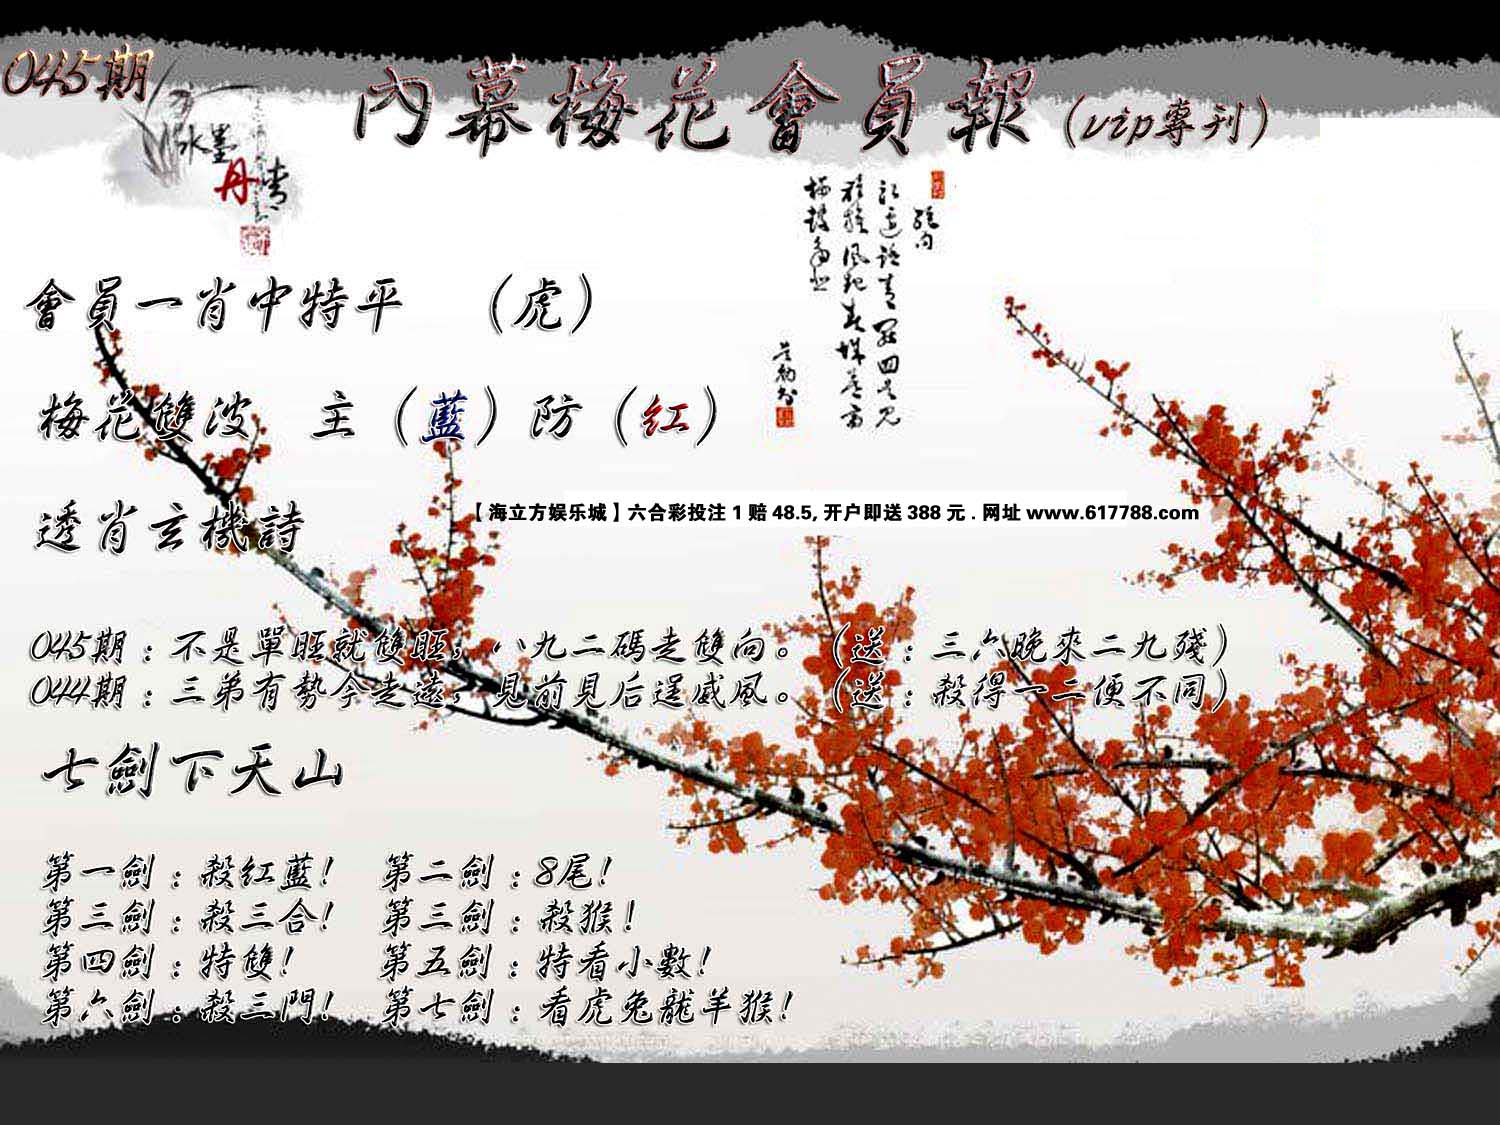 045期
內幕梅花會員報(vip專刊)
水墨
丹青
會員一肖中特平 (虎)
梅花雙波 主(藍)防(紅)
透肖玄機詩
【海立方娱乐城】六合彩投注1赔48.5,开户即送388元.网址www.617788.com
045期:不是單旺就雙旺,八九二碼走雙向。(送:三六晚來二九殘)
044期:三弟有勢今走遠,見前見后逞威風。(送:殺得一二便不同)
七劍下天山
第一劍:殺紅藍! 第二劍:8尾!
第三劍:殺三合! 第三劍:殺猴!
第四劍:特雙! 第五劍:特看小數!
第六劍:殺三門! 第七劍:看虎兔龍羊猴!